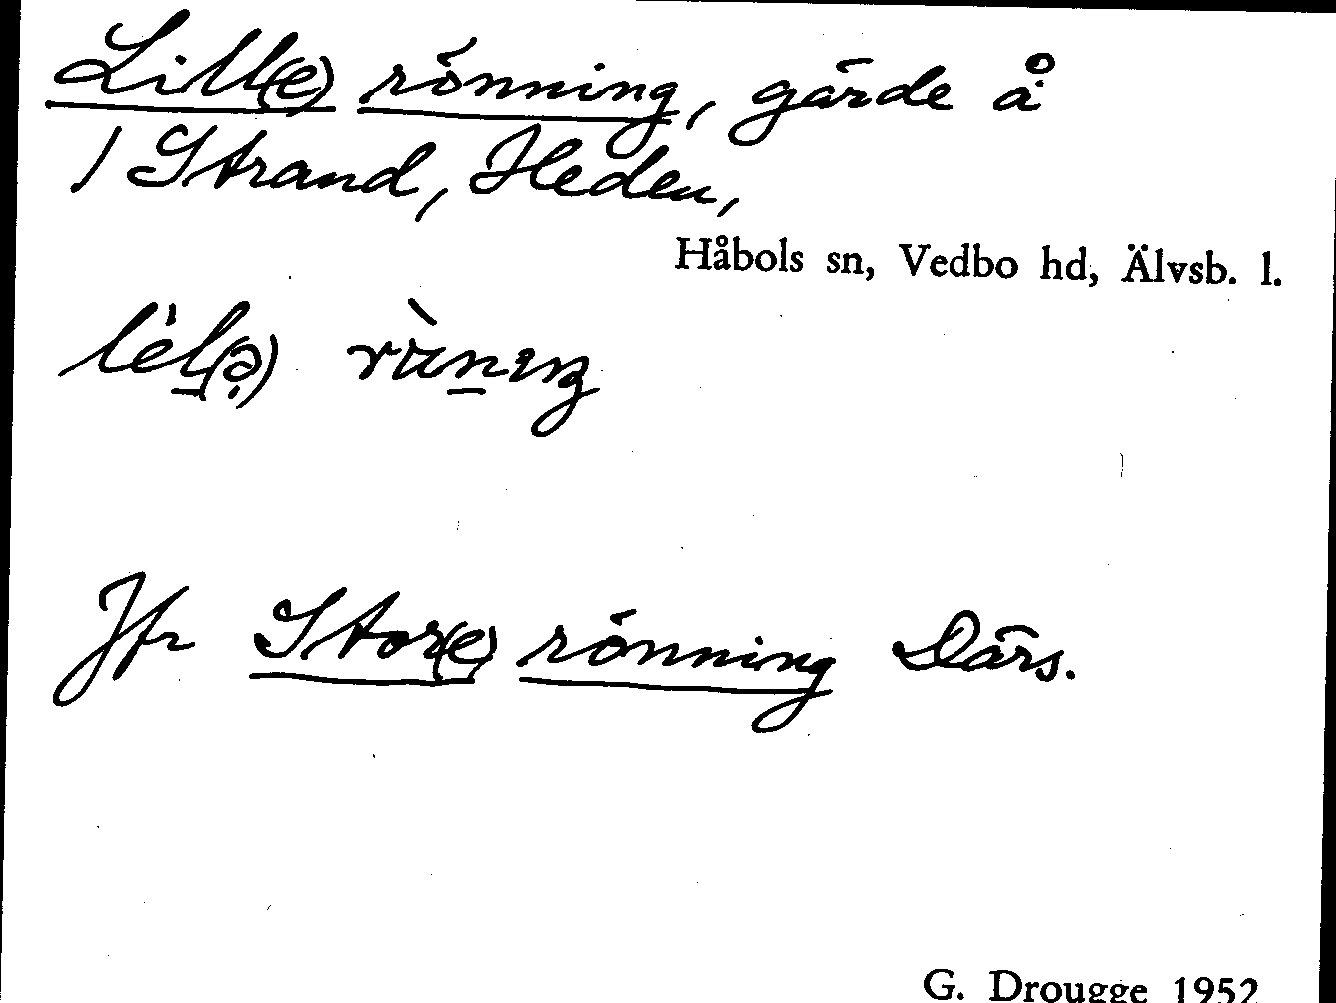 Lill(e) rönning, gärde å
/ Strand, Heden,
Håbols sn, Vedbo hd, Älvsb. l.
Jfr Stor(e) rönning Därs.
G. Drougge 1952